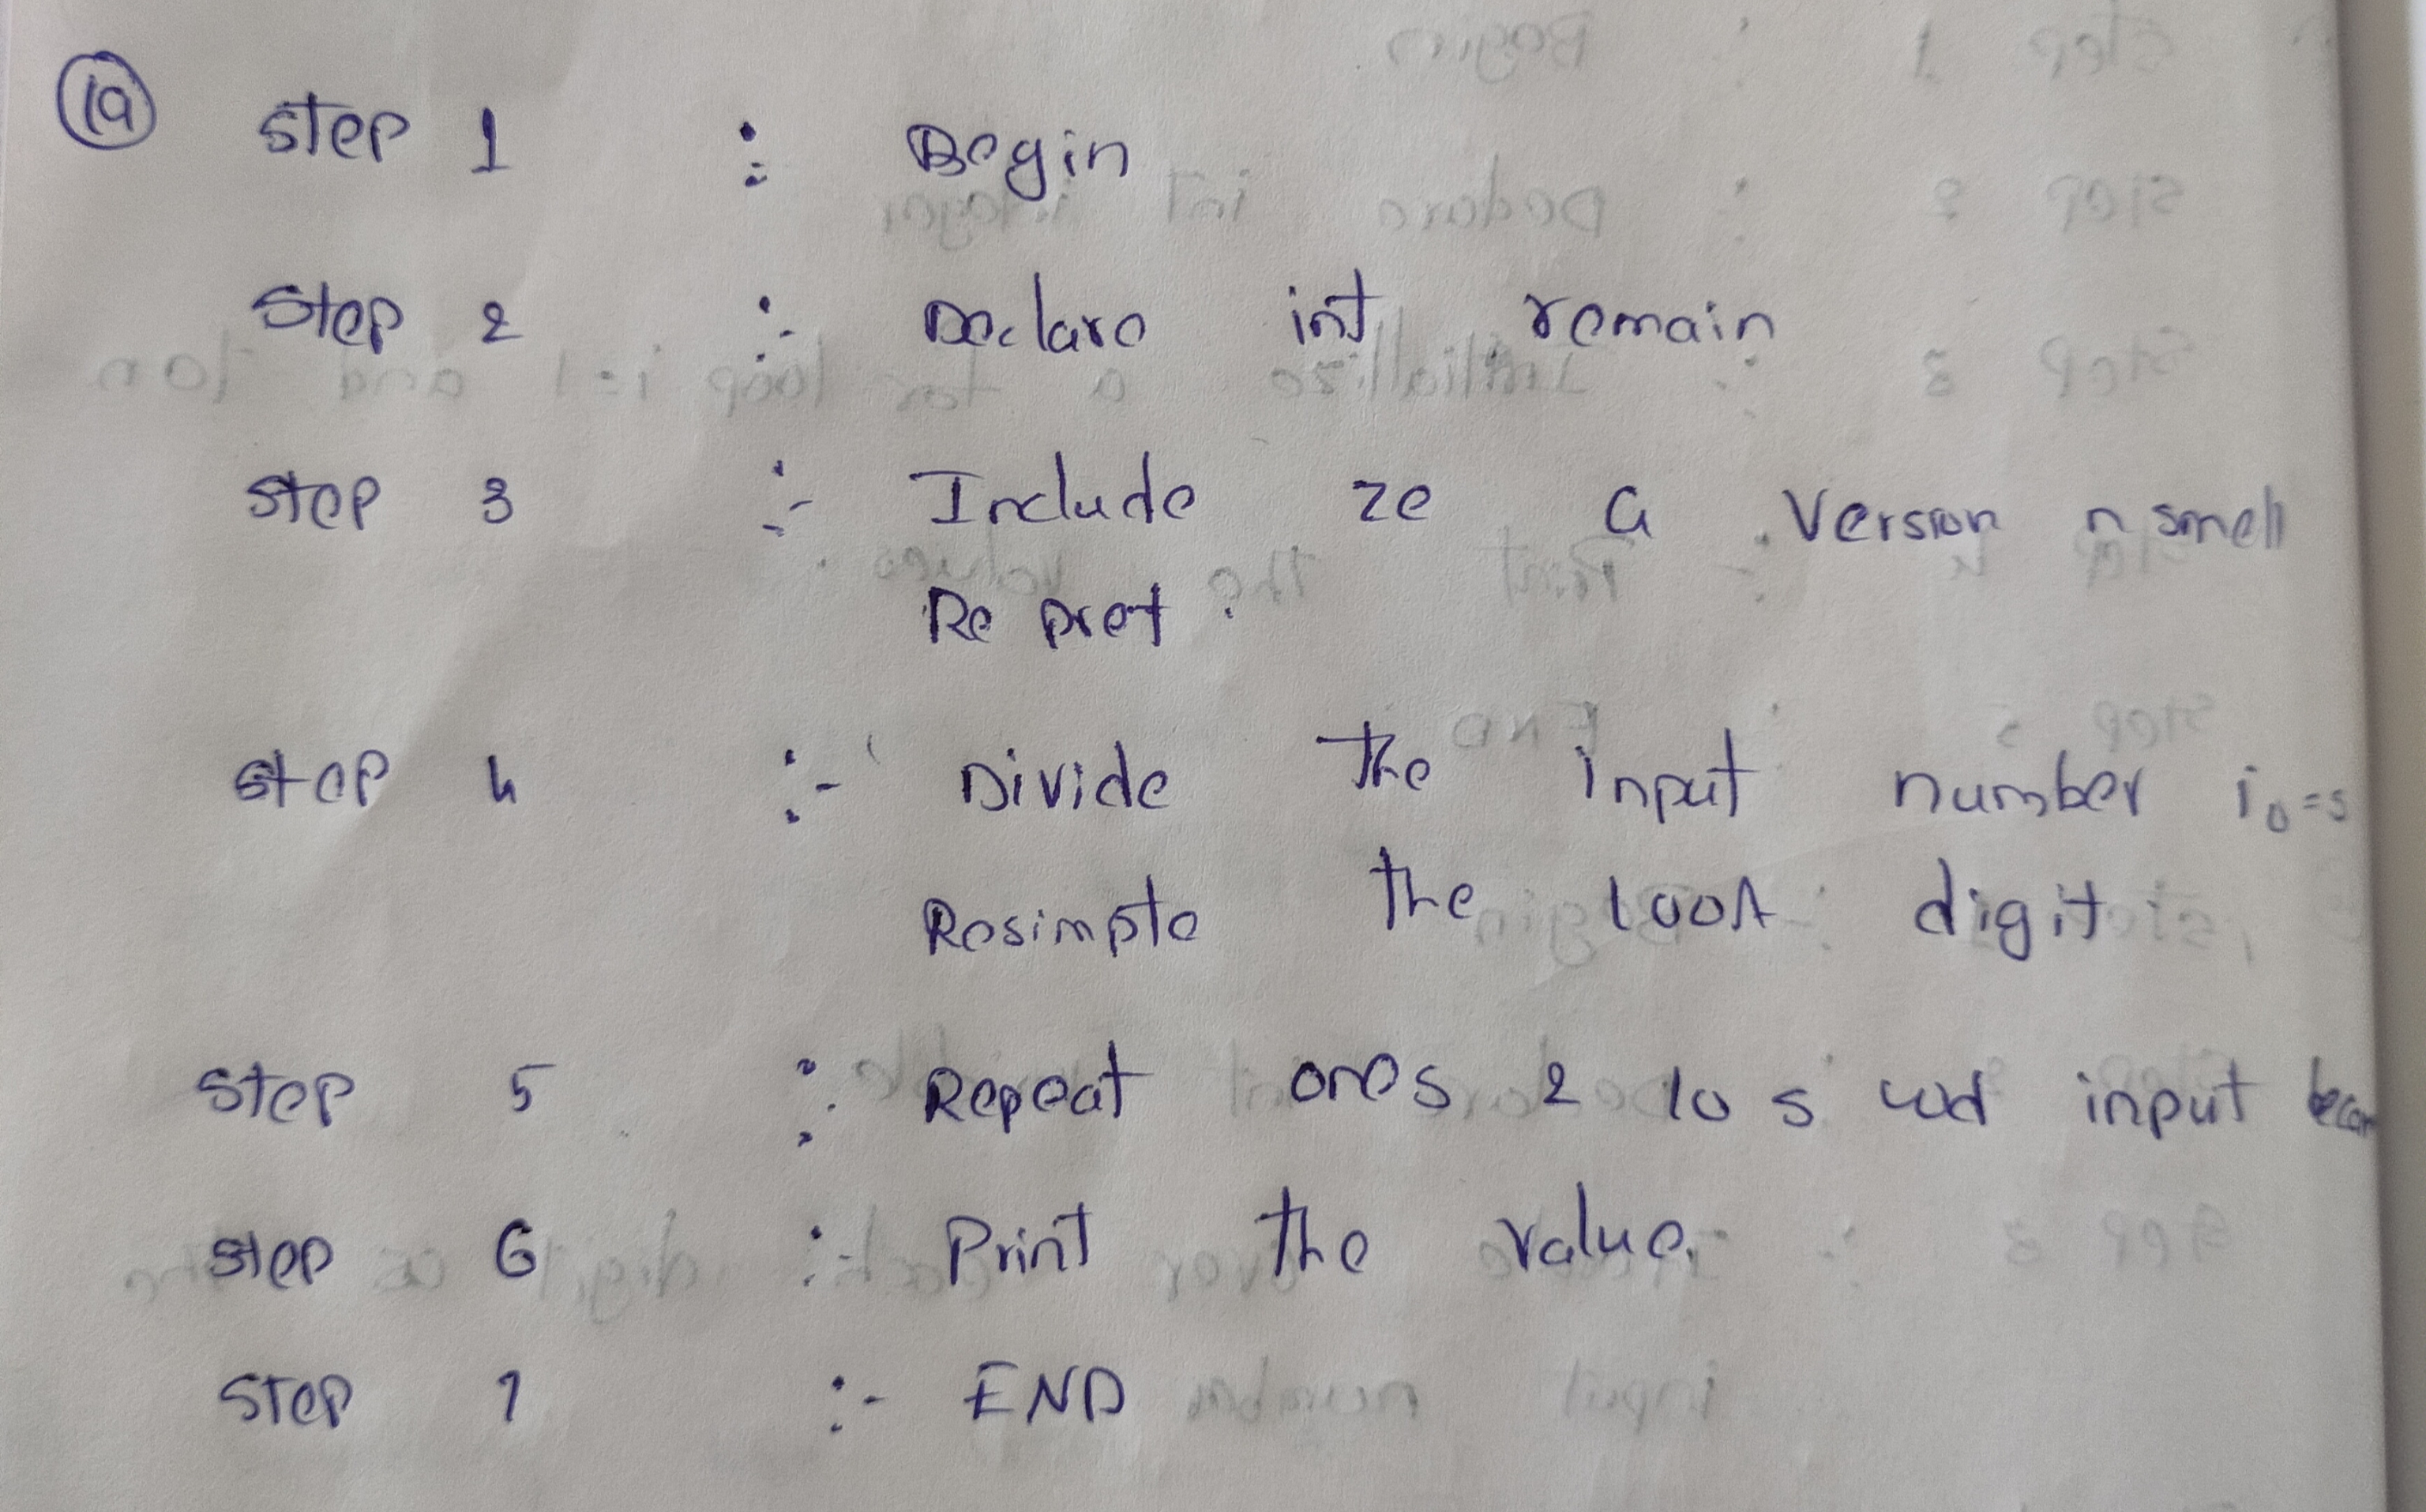 1a Step 1 : Begin
Step 2 :- Declare int remain
Step 3 :- Include ze a version n smell
Re pret.
Step 4 :- Divide the input number
the digit
Step 5 : Repeat ones 2 10 s input
Step 6 :- Print the value.
Step 7 :- END